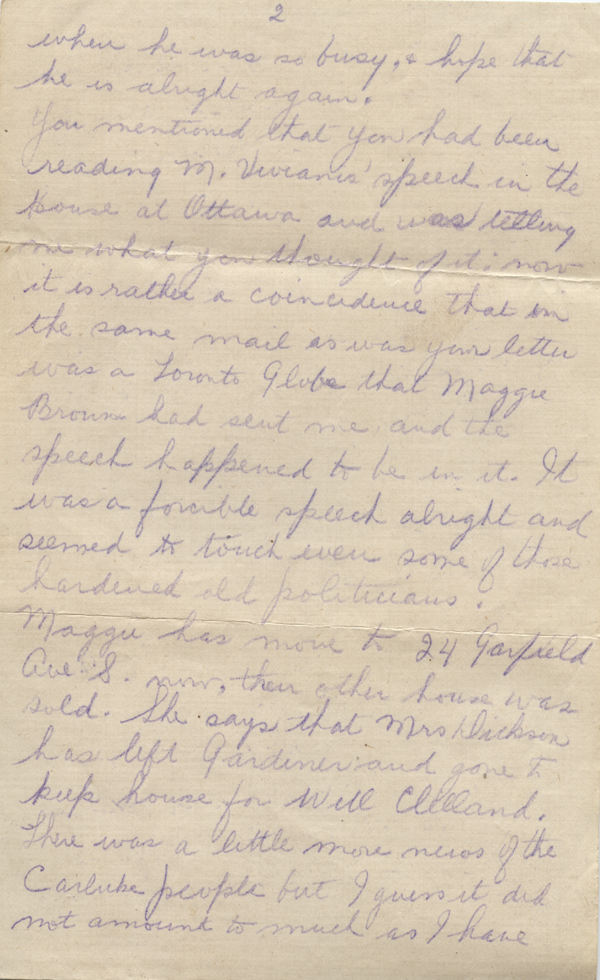 2
when he was so busy, & hope that
he is alright again.
You mentioned that you had been
reading M. Viviani's speech in the
house at Ottawa and was telling
me what you thought of it; now
it is rather a coincidence that in
the same mail as was your letter
was a Toronto Globe that Maggie
Brown had sent me and the
speech happened to be in it. It
was a forcible speech alright and
seemed to touch even some of those
hardened old politicians.
Maggie has move to 24 Garfield
Ave. S. now, their other house was
sold. She says that Mrs Dickson
has left Gardiner and gone to
keep house for Will Clelland.
There was a little more news of the
Carluke people but I guess it did
not amount to much as I have